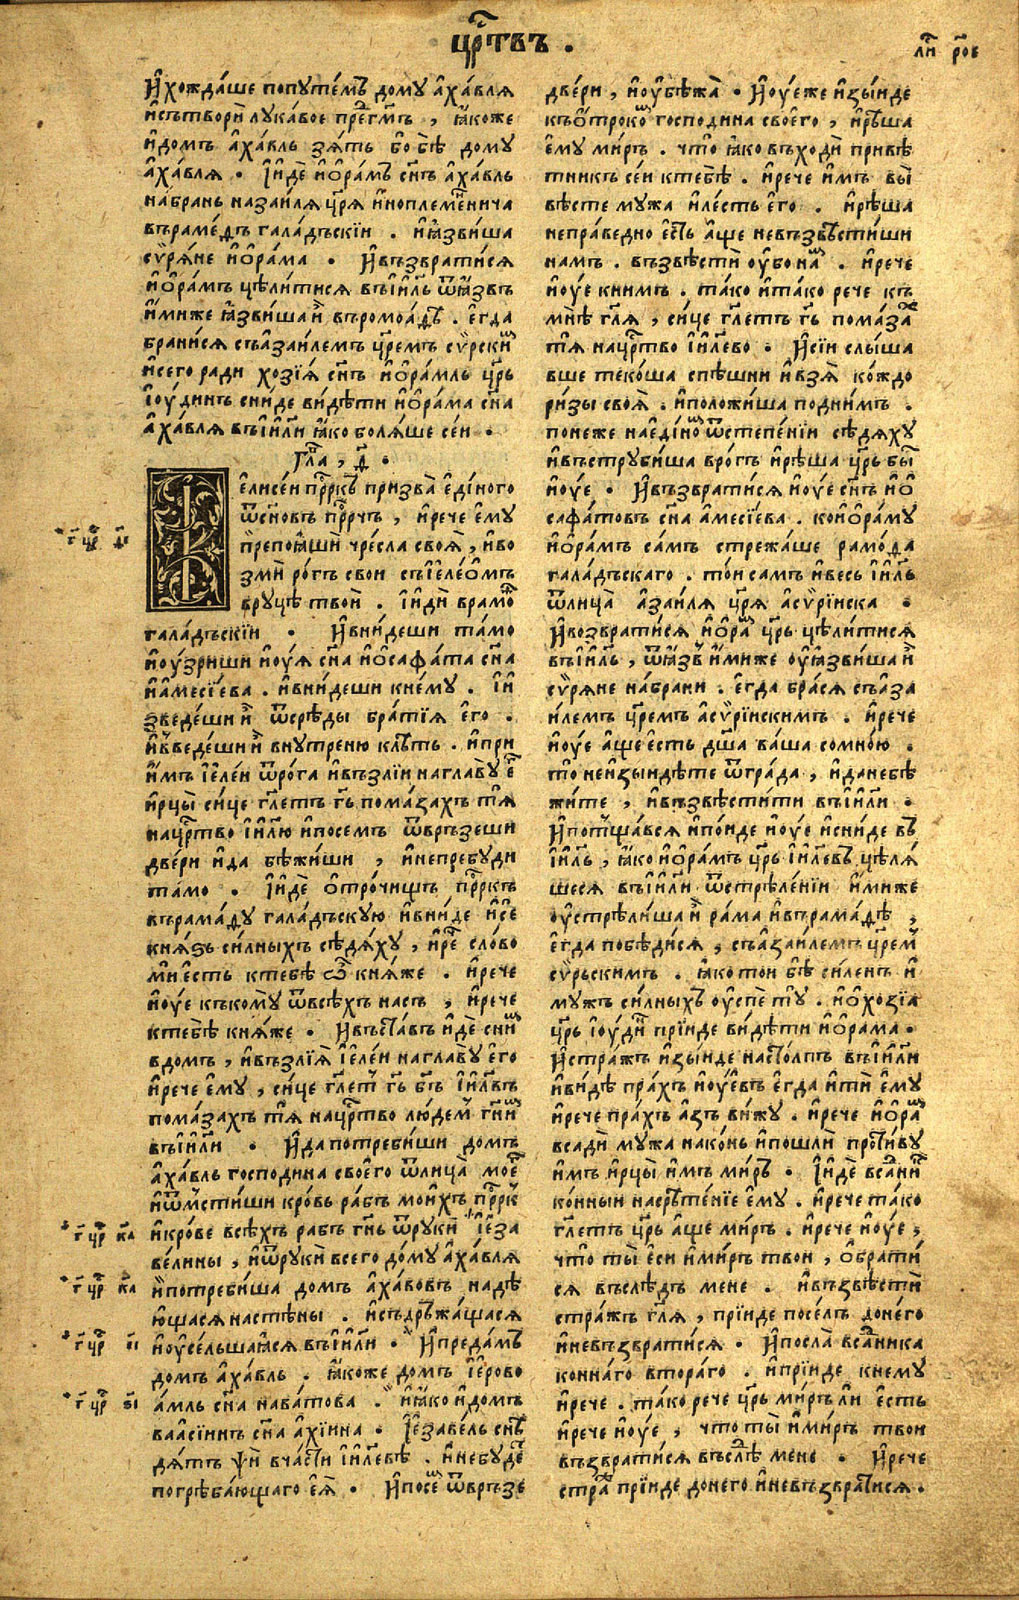 цр҃твъ .
ли҃ ро҃в
И҆хожда́ше попуте́мъ дому а҆ха́вля
и҆сътвори̑ лука́вое пре҃гмъ , ꙗ҆́коже
и҆домъ а҆ха́вль зя́ть бо бѣ̀ дому
а҆ха́вля . І҆и́де и҆ѻ҆ра́мъ сн҃ъ а҆ха́вль
на́брань наза́иля цр҃я и҆ноплеме́нича
върамед̾ъ гала́дъскїи . и҆ꙗ҆зви́ша
сѵ́ряне и҆ѻ҆ра́ма . И҆възврати́ся
и҆ѻ҆ра́мъ цѣли́тися въі҆и҃ль ѿꙗ҆́звъ
и҆́миже ꙗ҆зви́ша и҆̀ въромоа́дъ . е҆гда
брани́ся съаза́илемъ цр҃емъ сѵ́рски̾
и҆сего ради хозїя́ сн҃ъ и҆ѻ҆ра́мль цр҃ь
і҆ю́динъ сни́де ви́дѣти и҆ѻ҆ра́ма сн҃а
а҆ха́вля въі҆и҃ли ꙗ҆́ко боля́ше сеи .
гл҃а , д҃ .
е҆лисе́и пр҃ркъ призва̀ е҆ди́ного
ѿсн҃овъ пр҃рчъ , и҆рече е҆му
препоꙗ҆́ши чре́сла своѧ̀ , и҆во
зми ро́гъ свои съі҆еле́ѻмъ
вруцѣ твоѝ . І҆идѝ врамѻ̾
гала́дъскїи . И҆вни́деши та́мо
и҆оу҆́зриши и҆оу҆́я сн҃а и҆ѻ҆сафа́та сн҃а
и҆а҆месі́ева . и҆вни́деши кне́му . І҆и
зведе́ши и҆̀ ѿсрѣ́ды бра́тїя е҆го .
и҆въведе́ши и҆̀ вну́треню клѣ́ть . и҆прїи
и҆́мъ і҆еле́и ѿро́га и҆възлі́и наглаву̀ е҆г̾
и҆рцы̀ си́це гл҃етъ гь҃ пома́захъ тѧ̀
нацр҃тво і҆и҃лю и҆посемъ ѿвръзеши
двери и҆да бѣжи́ши , и҆непребуди
та́мо . І҆и́де ѻ҆тро́чищъ пр҃ркъ
върама́ду гала́дъскую и҆вни́де и҆се
кня́ѕь си́лныхъ сѣдя́ху , и҆ре̾ сло́во
мѝ есть ктебѣ̀ ѽ кня́же . и҆рече
и҆оу҆е къкому̀ ѿвсѣ́хъ насъ , и҆рече
ктебѣ̀ кня́же . И҆въста́въ и҆́де сни̾
вдомъ , и҆възлїѧ̀ і҆еле́и наглаву̀ е҆го
и҆рече е҆му , си́це гл҃ет̾ гь҃ бг҃ъ і҆и҃лвъ
пома́захъ тѧ̀ нацр҃тво лю́дем̾ гн҃и̾
въі҆и҃ли . И҆да потреби́ши домъ
а҆ха́вль господина своего̀ ѿлица̀ мое̾
и҆ѿмсти́ши кро́вь ра́бъ мои́хъ пр҃рк̾
и҆кро́ве всѣ́хъ рабъ гн҃ь ѿрукѝ і҆еза
ве́лины , и҆ѿрукѝ всего дому а҆ха́вля
и҆потреби́ша домъ а҆ха́вовъ надѣ́
ющася настѣ́ны . и҆съдръжа́щася
и҆оу҆се́льшаꙗся въі҆и҃ли . И҆преда́мъ
домъ а҆ха́вль . ꙗ҆́коже домъ і҆ерово
а́мль сн҃а нава́това . и҆ꙗ҆́ко и҆домъ
ваасі́инъ сн҃а а҆хі́ина . І҆езаве́ль снѣ
дя́тъ ѱѝ вча́сти і҆и҃левѣ . и҆небуде̾
погрѣба́ющаго еѧ̀ . И҆посе̾ ѿвръзе
г҃ цр҃ д҃і
г҃ цр҃ к҃а
г҃ цр҃ к҃а
г҃ цр҃ е҃і
г҃ цр҃ ѕ҃і
две́ри , и҆оу҆бѣжа̀ . И҆оу҆́еже и҆зы́иде
къѻ҆троко̾ господина своего , и҆рѣша
е҆му ми́ръ . что̀ ꙗ҆́ко въходѝ привѣ́
тникъ се́и ктебѣ̀ . и҆рече и҆мъ вы̀
вѣсте мужа и҆ле́сть е҆го . и҆рѣша
непра́ведно е҆сть а҆́ще невъзвѣсти́ши
намъ . възвѣстѝ оу҆бо на̾ . и҆рече
и҆оу҆е книмъ . та́ко и҆та́ко рече къ
мнѣ̀ гл҃я , си́це гл҃етъ гь҃ пома́за̾
тѧ̀ нацр҃тво і҆и҃лево . И҆сїи слы́ша
вше теко́ша спѣшни и҆взѧ̀ ко́ждо
ри́зы своѧ̀ . и҆положи́ша подни́мъ .
понеже наеди́но̾ ѿстепе́нїи сѣдя́ху
и҆въструби́ша вро́гъ и҆рѣша цр҃ь бы̾
и҆оу҆е . И҆възврати́ся и҆оу҆е сн҃ъ и҆ѻ
сафа́товъ сн҃а а҆месі́ева . кои҆ѻ҆ра́му
и҆ѻ҆ра́мъ са́мъ стрежа́ше рамо́да
гала́дъскаго . то́и самъ и҆весь і҆и҃ль
ѿлица̀ а҆за́иля цр҃я а҆сѵрі́иска .
И҆возврати́ся и҆ѻ҆ра̾ цр҃ь цѣли́тися
въі҆и҃ль , ѿꙗ҆́звъ и҆́миже оу҆ꙗ҆зви́ша и҆̀
сѵ́ряне на́брани . е҆гда бра́ся съа҆за
и́лемъ цр҃емъ а҆сѵрі́искимъ . и҆рече
и҆оу҆е а҆́ще есть дш҃а ва́ша сомно́ю .
то̀ неи҆зы́идѣте ѿгра́да , и҆да небѣ
жи́те , и҆възвѣсти́ти въі҆и҃ли .
И҆потща́вся и҆по́иде и҆оу҆е и҆сни́де въ
і҆и҃ль , ꙗ҆́ко и҆ѻ҆ра́мъ цр҃ь і҆и҃левъ цѣля́
шеся въі҆и҃ли ѿстрѣле́нїи и҆́миже
оу҆стрѣли́ша и҆̀ ра́ма и҆върама́дѣ ,
е҆гда побѣди́ся , съа҆за́илемъ цр҃ем̾
сѵ́рьскимъ . ꙗ҆́ко тои бѣ̀ си́ленъ и҆
мужъ си́лныхъ оу҆спѣ̀ ту̀ . и҆ѻ҆хозїа
цр҃ь і҆ю́ди̾ прі́иде ви́дѣти и҆ѻ҆ра́ма .
И҆стра́жъ и҆зы́иде насто́лпъ въі҆и҃ли
и҆ви́дѣ пра́хъ и҆оу҆́евъ е҆гда и҆тѝ е҆му
и҆рече пра́хъ а҆зъ ви́жу . и҆рече и҆ѻ҆ра̾
всадѝ мужа нако́нь и҆пошлѝ проти́ву
и҆мъ и҆рцы̀ и҆мъ ми́ръ . І҆и́де вса́дни̾
ко́нныи насрѣ́тенїе е҆му . и҆рече та́ко
гл҃етъ цр҃ь а҆́ще ми́ръ . и҆рече и҆оу҆е ,
что̀ ты̀ еси и҆ми́ръ твои , ѻ҆брати́
ся въслѣ́дъ мене . и҆възвѣстѝ
стра́жъ гл҃я , прі́иде посе́лъ доне́го
и҆невъзврати́ся . И҆посла̀ вса́дника
ко́ннаго втора́го . и҆прі́иде кнему
и҆рече . та́ко рече цр҃ь ми́ръ ли есть
и҆рече и҆оу҆е , что ты̀ и҆ми́ръ твои
възврати́ся въслѣ̾ мене . И҆рече
стра̾ прі́иде донего и҆невъзврати́ся .